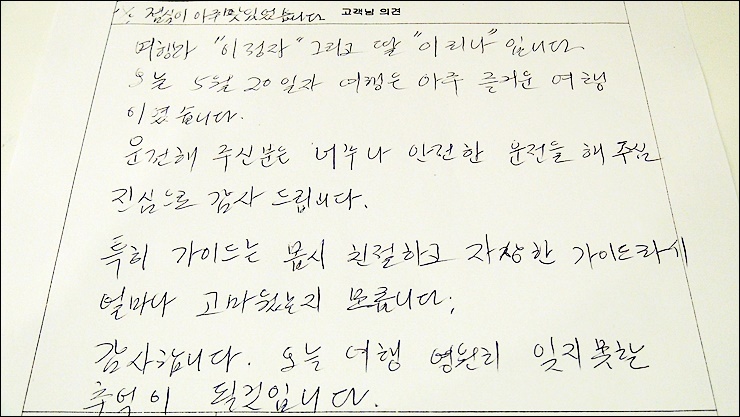 ※ 점심이 아주 맛있었습니다 고객님 의견
여행과 "이정자" 그리고 딸 "이리나" 입니다.
오늘 5월 20일자 여행은 아주 즐거운 여행
이였습니다.
운전해 주신분은 너무나 안전한 운전들 해 주심
진심으로 감사 드립니다.
특히 가이드는 몹시 친절하고 자상한 가이드라서
얼마나 고마웠는지 모릅니다.
감사합니다. 오늘 여행 영원히 잊지못할
추억이 될것입니다.